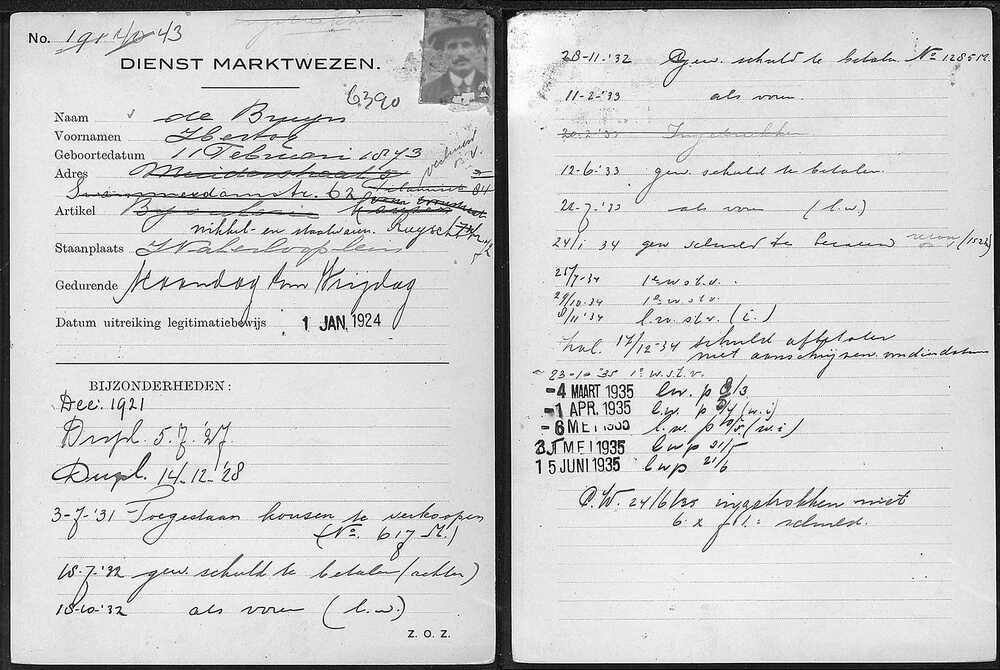 No. 43
DIENST MARKTWEZEN.
6390
Naam de Bruijn
Voornamen Hertog
Geboortedatum 11 Februari 1873
Adres
Swammerdamstr. 62
84
Artikel
nikkel- en staalwaren. Ruysch
Staanplaats Waterlooplein
Gedurende Maandag t/m Vrijdag
Datum uitreiking legitimatiebewijs : 1 JAN. 1924
BIJZONDERHEDEN:
Dec. 1921
Dupl. 5.7.'27
Dupl. 14-12-'28
3-7-'31 Toegestaan kousen te verkoopen
(No. 617 M.)
8
18-7-'32 gew. schuld te betalen (achter)
18-10-'32 als voren (l.w.)
Z. O. Z.
28-11-'32 Gew. schuld te betalen No 1285 M.
11-2-'33 als voren.
20-2-'33 Ingetrokken
12-6-'33 gew. schuld te betalen.
20-7-'33 als voren (l.w.)
24/1 34 gew schuld te betalen
25/7-34 1e w. st. v.
29/10-34 1e w st. v.
8/11'34 l.w. st. v. (i.)
17/12-34 schuld afbetalen
niet aanschrijven
23-10-'35 1e w. s. t. v.
-4 MAART 1935 lw. p 8/3
-1 APR. 1935 l.w. p 5/4 (w.i)
-6 MEI 1935 l.w. p 10/5 (w.i)
31 MEI 1935 lwp
15 JUNI 1935 lwp 21/6
D.W. 24/6/35 ingetrokken met
6 x f 1.= schuld.